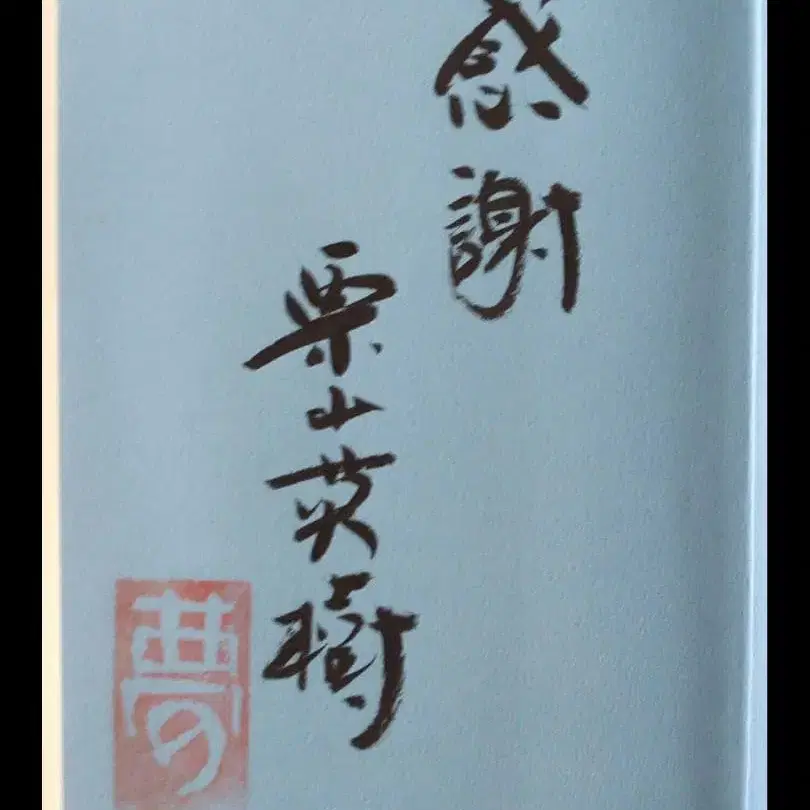 感謝
栗山英樹
夢